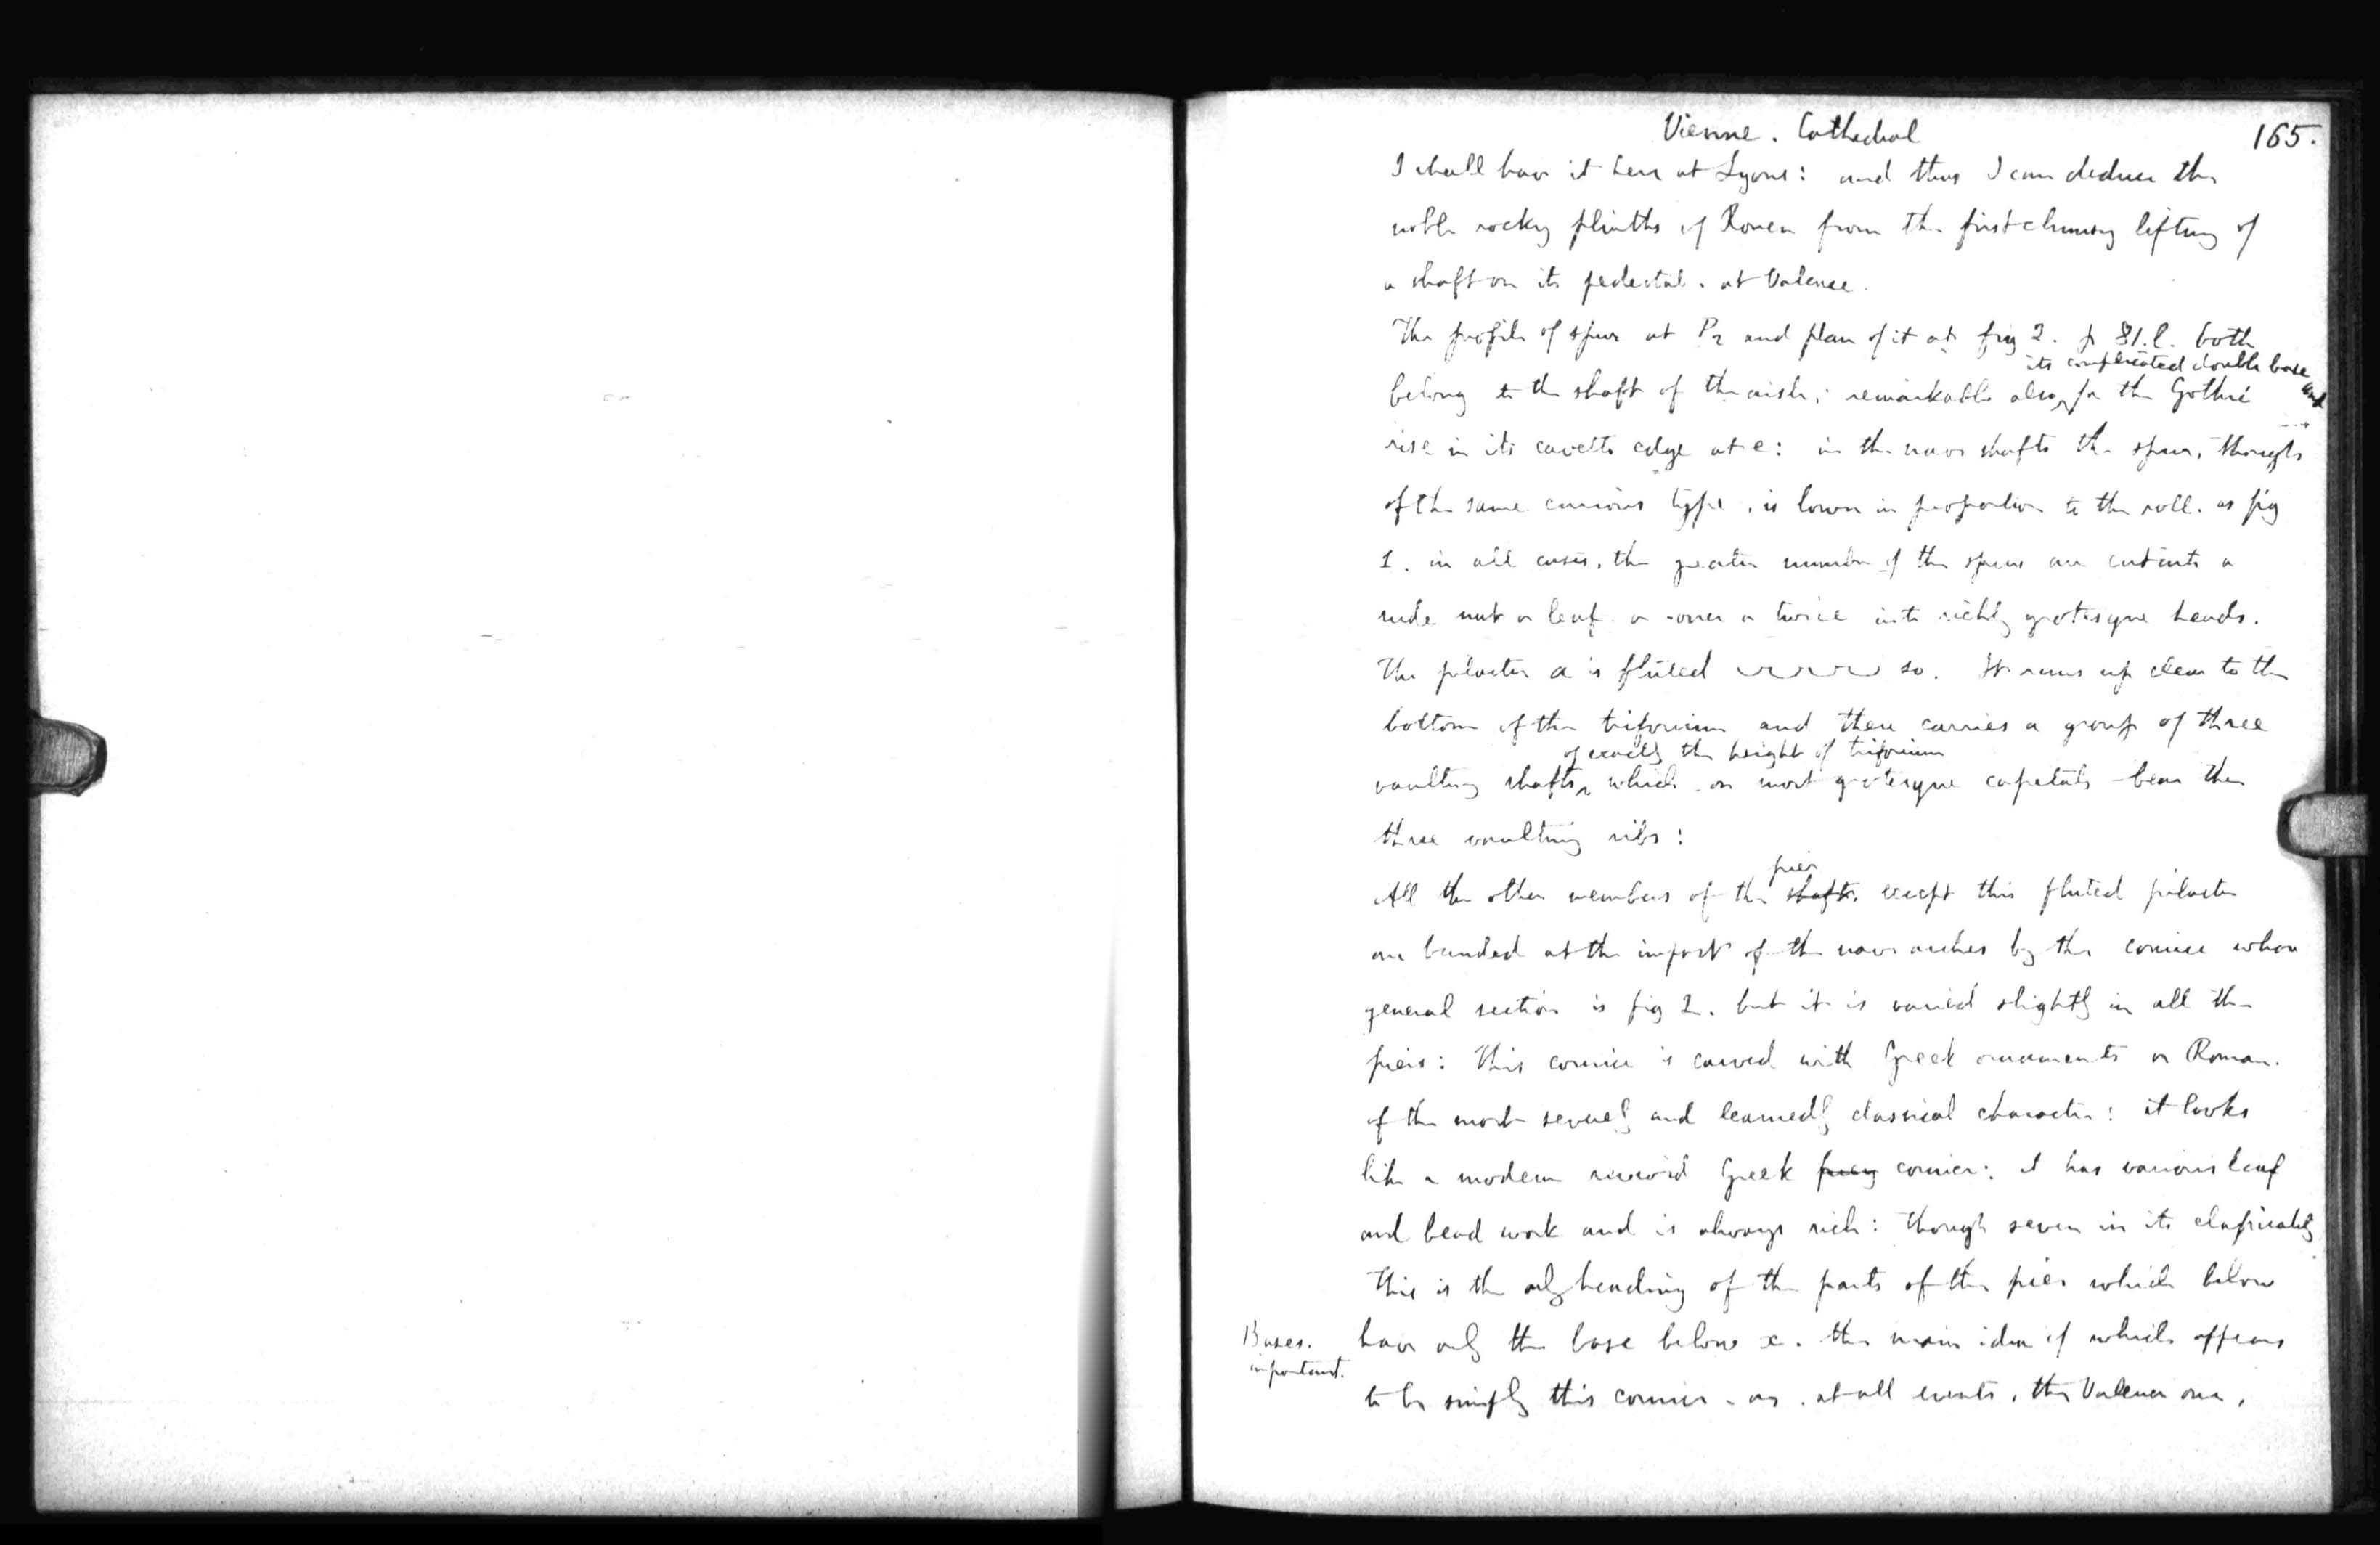 Vienne. Cathedral
165.
I shall have it here at Lyons: and thus I can deduce the
noble rocky plinths of Rouen from the first clumsy lifting of
a shaft on its pedestal. at Valence.
The profile of spur at P2 and plan of it at fig 2. p 81.l. both
its complicated double base and
belong to the shaft of the aisle; remarkable also for the Gothic
rise in its cavetto edge at e: in the nave shafts the spur, though
of the same curious type, is lower in proportion to the roll. as fig
1. in all cases, the greater number of the spurs are cut into a
rude nut or leaf. or once or twice into richly grotesque heads.
The pilaster a is fluted so. It runs up clear to the
bottom of the triforium and there carries a group of three
of exactly the height of triforium
vaulting shafts, which on most grotesque capitals bear the
three vaulting ribs:
pier
All the other members of the shafts. except this fluted pilaster
are banded at the impost of the nave arches by the cornice whose
general section is fig 2. but it is varied slightly in all the
piers: This cornice is carved with Greek ornaments or Roman.
of the most severely and learnedly classical character: it looks
like a modern revived Greek cornice: it has various leaf
and bead work and is always rich: though severe in its
This is the only heading of the parts of the pier which below
Bases.
important.
have only the base below x. the main idea of which appears
to be simply this cornice - or. at all events, the Valence one,